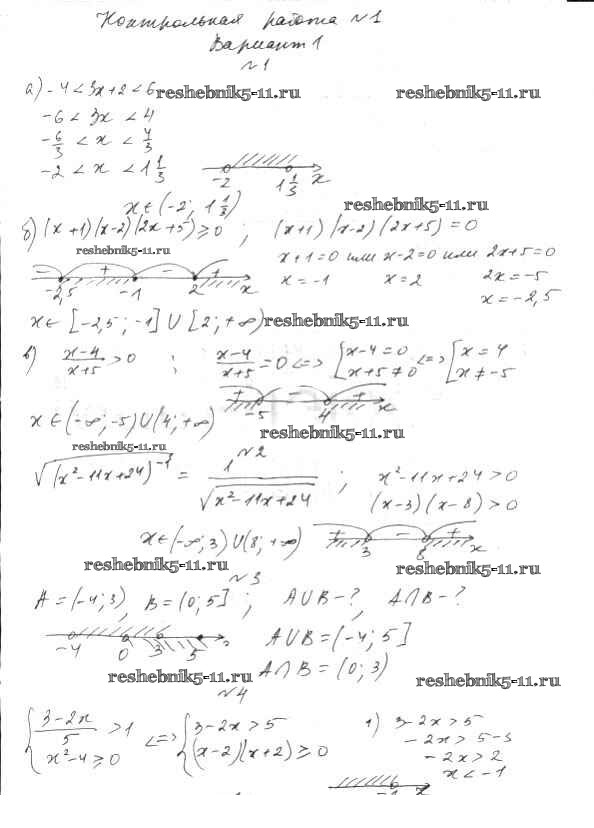 Контрольная работа №1
Вариант 1
№1
а) -4 < 3x+2 < 6 reshebnik5-11.ru reshebnik5-11.ru
-6 < 3x < 4
-6/3 < x < 4/3
-2 < x < 1 1/3
-2 1 1/3 x
x ∈ (-2; 1 1/3) reshebnik5-11.ru
б) (x+1)(x-2)(2x+5) ≥ 0 ; (x+1)(x-2)(2x+5) = 0
reshebnik5-11.ru x+1=0 или x-2=0 или 2x+5=0
- + - + x = -1 x = 2 2x = -5
-2,5 -1 2 x x = -2,5
x ∈ [-2,5; -1] ∪ [2; +∞) reshebnik5-11.ru
в) (x-4)/(x+5) > 0 ; (x-4)/(x+5) = 0 <=> { x-4=0 <=> [ x = 4
x+5 ≠ 0 x ≠ -5
+ - +
-5 4 x
x ∈ (-∞; -5) ∪ (4; +∞) reshebnik5-11.ru
reshebnik5-11.ru №2
√((x²-11x+24)⁻¹) = 1/√(x²-11x+24) ; x²-11x+24 > 0
(x-3)(x-8) > 0
x ∈ (-∞; 3) ∪ (8; +∞) + - +
3 8 x
reshebnik5-11.ru reshebnik5-11.ru
№3
A = (-4; 3), B = (0; 5] ; A∪B-?, A∩B-?
-4 0 3 5 A∪B = (-4; 5]
A∩B = (0; 3)
reshebnik5-11.ru reshebnik5-11.ru
№4
{ (3-2x)/5 > 1 <=> { 3-2x > 5 1) 3-2x > 5
x²-4 ≥ 0 (x-2)(x+2) ≥ 0 -2x > 5-3
-2x > 2
x < -1
-1 x